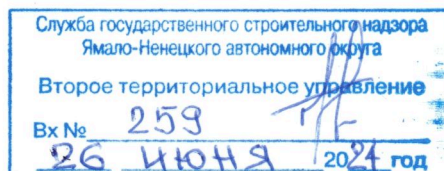 Служба государственного строительного надзора
Ямало-Ненецкого автономного округа
Второе территориальное управление
Вх № 259
26 июня 2024 год